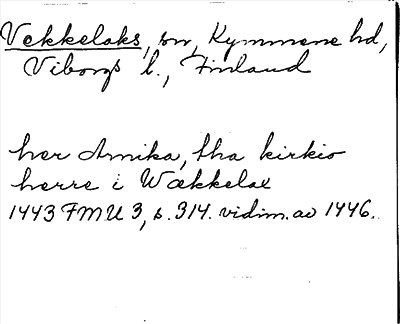 Vekkelaks, sn, Kymmene hd,
Viborgs l., Finland
her Amika, tha kirkio
herre i Wækkelax
1443 FMU 3, s. 314. vidim. av 1446.